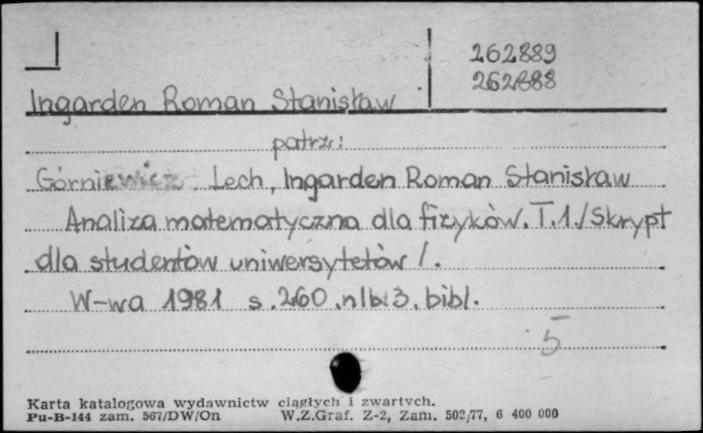 262889
262888
Ingarden Roman Stanisław
patrz:
Górniewicz Lech, Ingarden Roman Stanisław
Analiza matematyczna dla fizyków. T.1./Skrypt
dla studentów uniwersytetów/.
W-wa 1981 s. 260. nlb. 3. bibl.
5
Karta katalogowa wydawnictw ciągłych i zwartych.
Pu-B-144 zam. 567/DW/On W.Z.Graf. Z-2, Zam. 502/77, 6 400 000